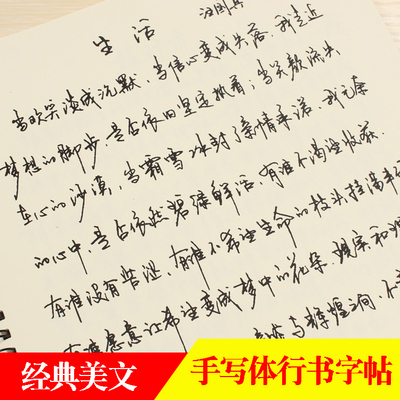 生活
汪国
当欢笑淡成沉默,当信心变成失落,我走近
梦想的脚步,是否依旧坚定执着;当笑颜流失
在心的沙漠,当霜雪冰封了亲情承诺,我无奈
的心中,是否依然碧绿鲜活,有谁不渴望收获,
有谁没有苦涩,有谁不希望生命的枝头挂满丰
谁愿意让希望变成梦中的花朵,现实和
与辉煌之间,不
经典美文
手写体行书字帖